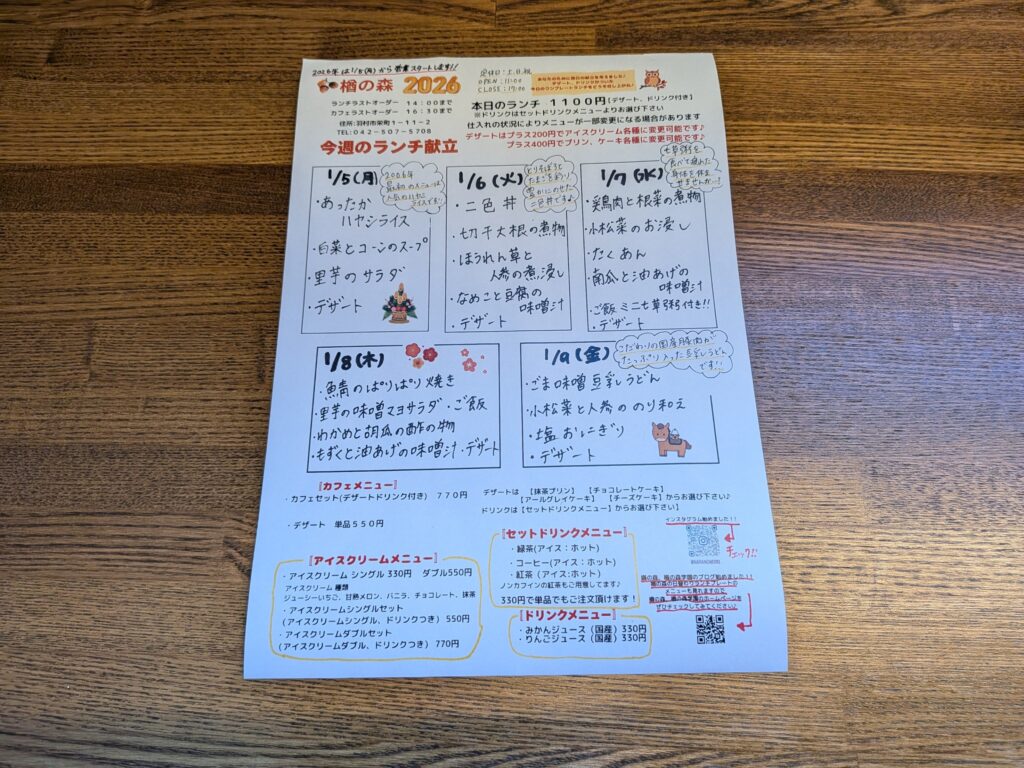 2026年は1/5(月)から営業スタートします!!
楢の森 2026
定休日:土.日.祝
OPEN:11:00
CLOSE:17:00
ランチラストオーダー 14:00まで
カフェラストオーダー 16:30まで
住所:羽村市栄町1-11-2
TEL:042-507-5708
本日のランチ 1100円【デザート、ドリンク付き】
※ドリンクはセットドリンクメニューよりお選び下さい
仕入れの状況によりメニューが一部変更になる場合があります
デザートはプラス200円でアイスクリーム各種に変更可能です♪
プラス400円でプリン、ケーキ各種に変更可能です♪
今週のランチ献立
1/5(月)
2026年
最初のメニューは
人気のハヤシ
ライスです!
・あったか
ハヤシライス
・白菜とコーンのスープ
・里芋のサラダ
・デザート
1/6(火)
とりそぼろと
たまごをあつ
豊かにのせた
二色丼です♪
・二色丼
・切干大根の煮物
・ほうれん草と
人参の煮浸し
・なめこと豆腐の
味噌汁
・デザート
1/7(水)
七草粥を
食べて疲れた
身体を休ま
せませんか…?
・鶏肉と根菜の煮物
・小松菜のお浸し
・たくあん
・南瓜と油あげの
味噌汁
・ご飯 ミニ七草粥付き!!
・デザート
1/8(木)
・鯖のぱりぱり焼き
・里芋の味噌マヨサラダ・ご飯
・わかめと胡瓜の酢の物
・もずくと油あげの味噌汁・デザート
1/9(金)
こだわりの国産豚肉が
たっぷり入った豆乳うどん
です!!
・ごま味噌豆乳うどん
・小松菜と人参ののり和え
・塩おにぎり
・デザート
『カフェメニュー』
・カフェセット(デザートドリンク付き) 770円
デザートは 【抹茶プリン】 【チョコレートケーキ】
【アールグレイケーキ】 【チーズケーキ】からお選び下さい♪
ドリンクは【セットドリンクメニュー】からお選び下さい】
・デザート 単品550円
『アイスクリームメニュー』
・アイスクリーム シングル330円 ダブル550円
アイスクリーム 種類
ジューシーいちご、甘熟メロン、バニラ、チョコレート、抹茶
・アイスクリームシングルセット
(アイスクリームシングル、ドリンクつき) 550円
・アイスクリームダブルセット
(アイスクリームダブル、ドリンクつき) 770円
『セットドリンクメニュー』
・緑茶(アイス:ホット)
・コーヒー(アイス:ホット)
・紅茶(アイス:ホット)
ノンカフインの紅茶もご用意してます♪
330円で単品でもご注文頂けます!
『ドリンクメニュー』
・みかんジュース(国産)330円
・りんごジュース(国産)330円
インスタグラム始めました!!
チェック!!